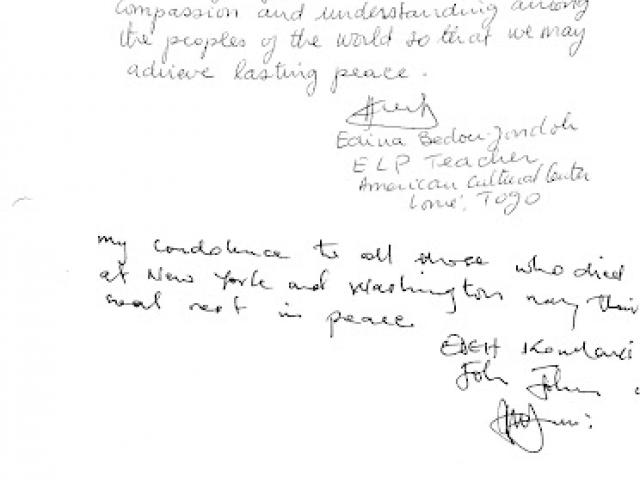 compassion and understanding among
the peoples of the world so that we may
achieve lasting peace.
Edina Bedou-Jondoh
ELP Teacher
American Cultural Center
Lomé, Togo
my condolence to all those who died
at New York and Washington may their
soal rest in peace
EDEH
John